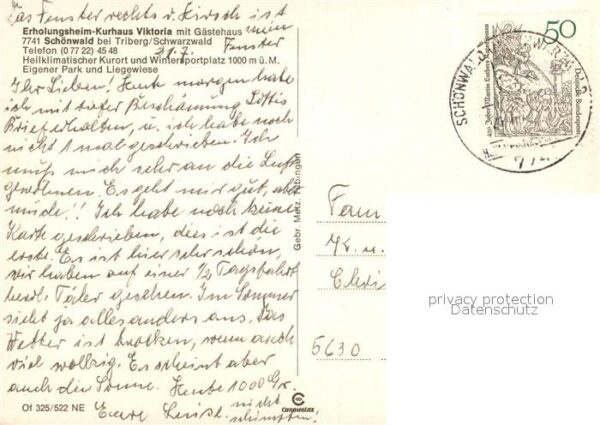 Das Fenster rechts v. Kreuzch ist
mein
Fenster
Erholungsheim-Kurhaus Viktoria mit Gästehaus
7741 Schönwald bei Triberg/Schwarzwald
Telefon (0 77 22) 45 48
21.7.
Heilklimatischer Kurort und Wintersportplatz 1000 m ü. M.
Eigener Park und Liegewiese
Ihr Lieben! Heute morgen habe
ich mit tiefer Beschämung Lottis
Brief erhalten, u. ich habe noch
nicht 1 mal geschrieben. Ich
muß mich sehr an die Luft
gewöhnen. Es geht mir gut, aber
müde!! Ich habe noch keine
Karte geschrieben, dies ist die
erste. Es ist hier sehr schön,
wir haben auf einer 1/2 Tagsfahrt
herrl. Täler gesehen. Im Sommer
sieht ja alles anders aus. Das
Wetter ist trocken, wenn auch
viel wolkig. Es scheint aber
auch die Sonne. Heute 1000 Gr.
Eure
nicht
schimpfen!
Of 325/522 NE
Gebr. Metz, Tübingen
50
Deutsche Bundespost
SCHÖNWALD
Fam
Chri
5630
privacy protection
Datenschutz